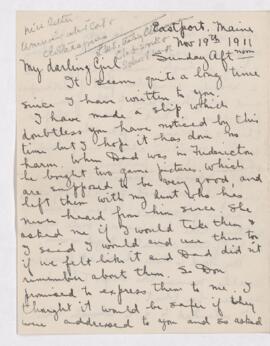 Eastport, Maine
Nov 19th 1911
Sunday Aft noon
My darling Girl
It seems quite a long time
since I have written to you.
I have made a slip which
doubtless you have noticed by this
time but I hope it has done no
harm. When Dad was in Fredericton
he bought two game pictures, which
are supposed to be very good, and
left them with my Aunt who has
never heard from him since. She
asked me if I would take them &
I said I would and use them too
if we felt like it and Dad did n't
remember about them. So Don
promised to express them to me. I
thought it would be safer if they
were addressed to you and so asked